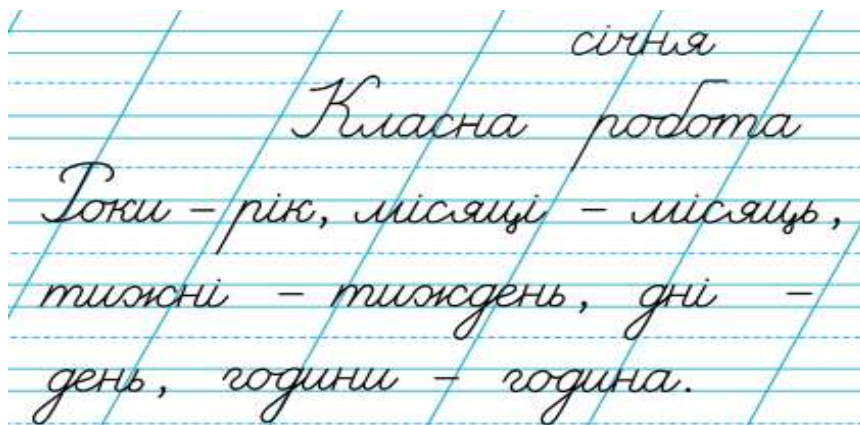 січня
Класна робота
Роки – рік, місяці – місяць,
тижні – тиждень, дні –
день, години – година.